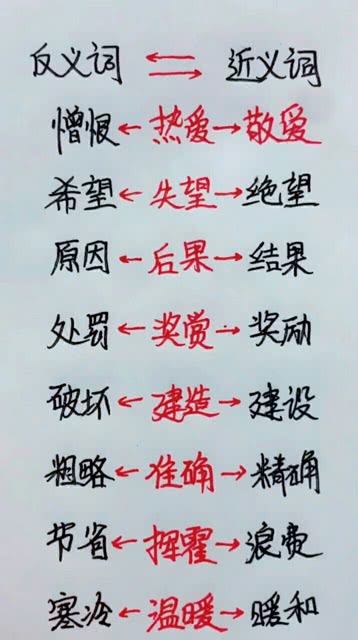 反义词 ⇆ 近义词
憎恨←热爱→敬爱
希望←失望→绝望
原因←后果→结果
处罚←奖赏→奖励
破坏←建造→建设
粗略←准确→精确
节省←挥霍→浪费
寒冷←温暖→暖和